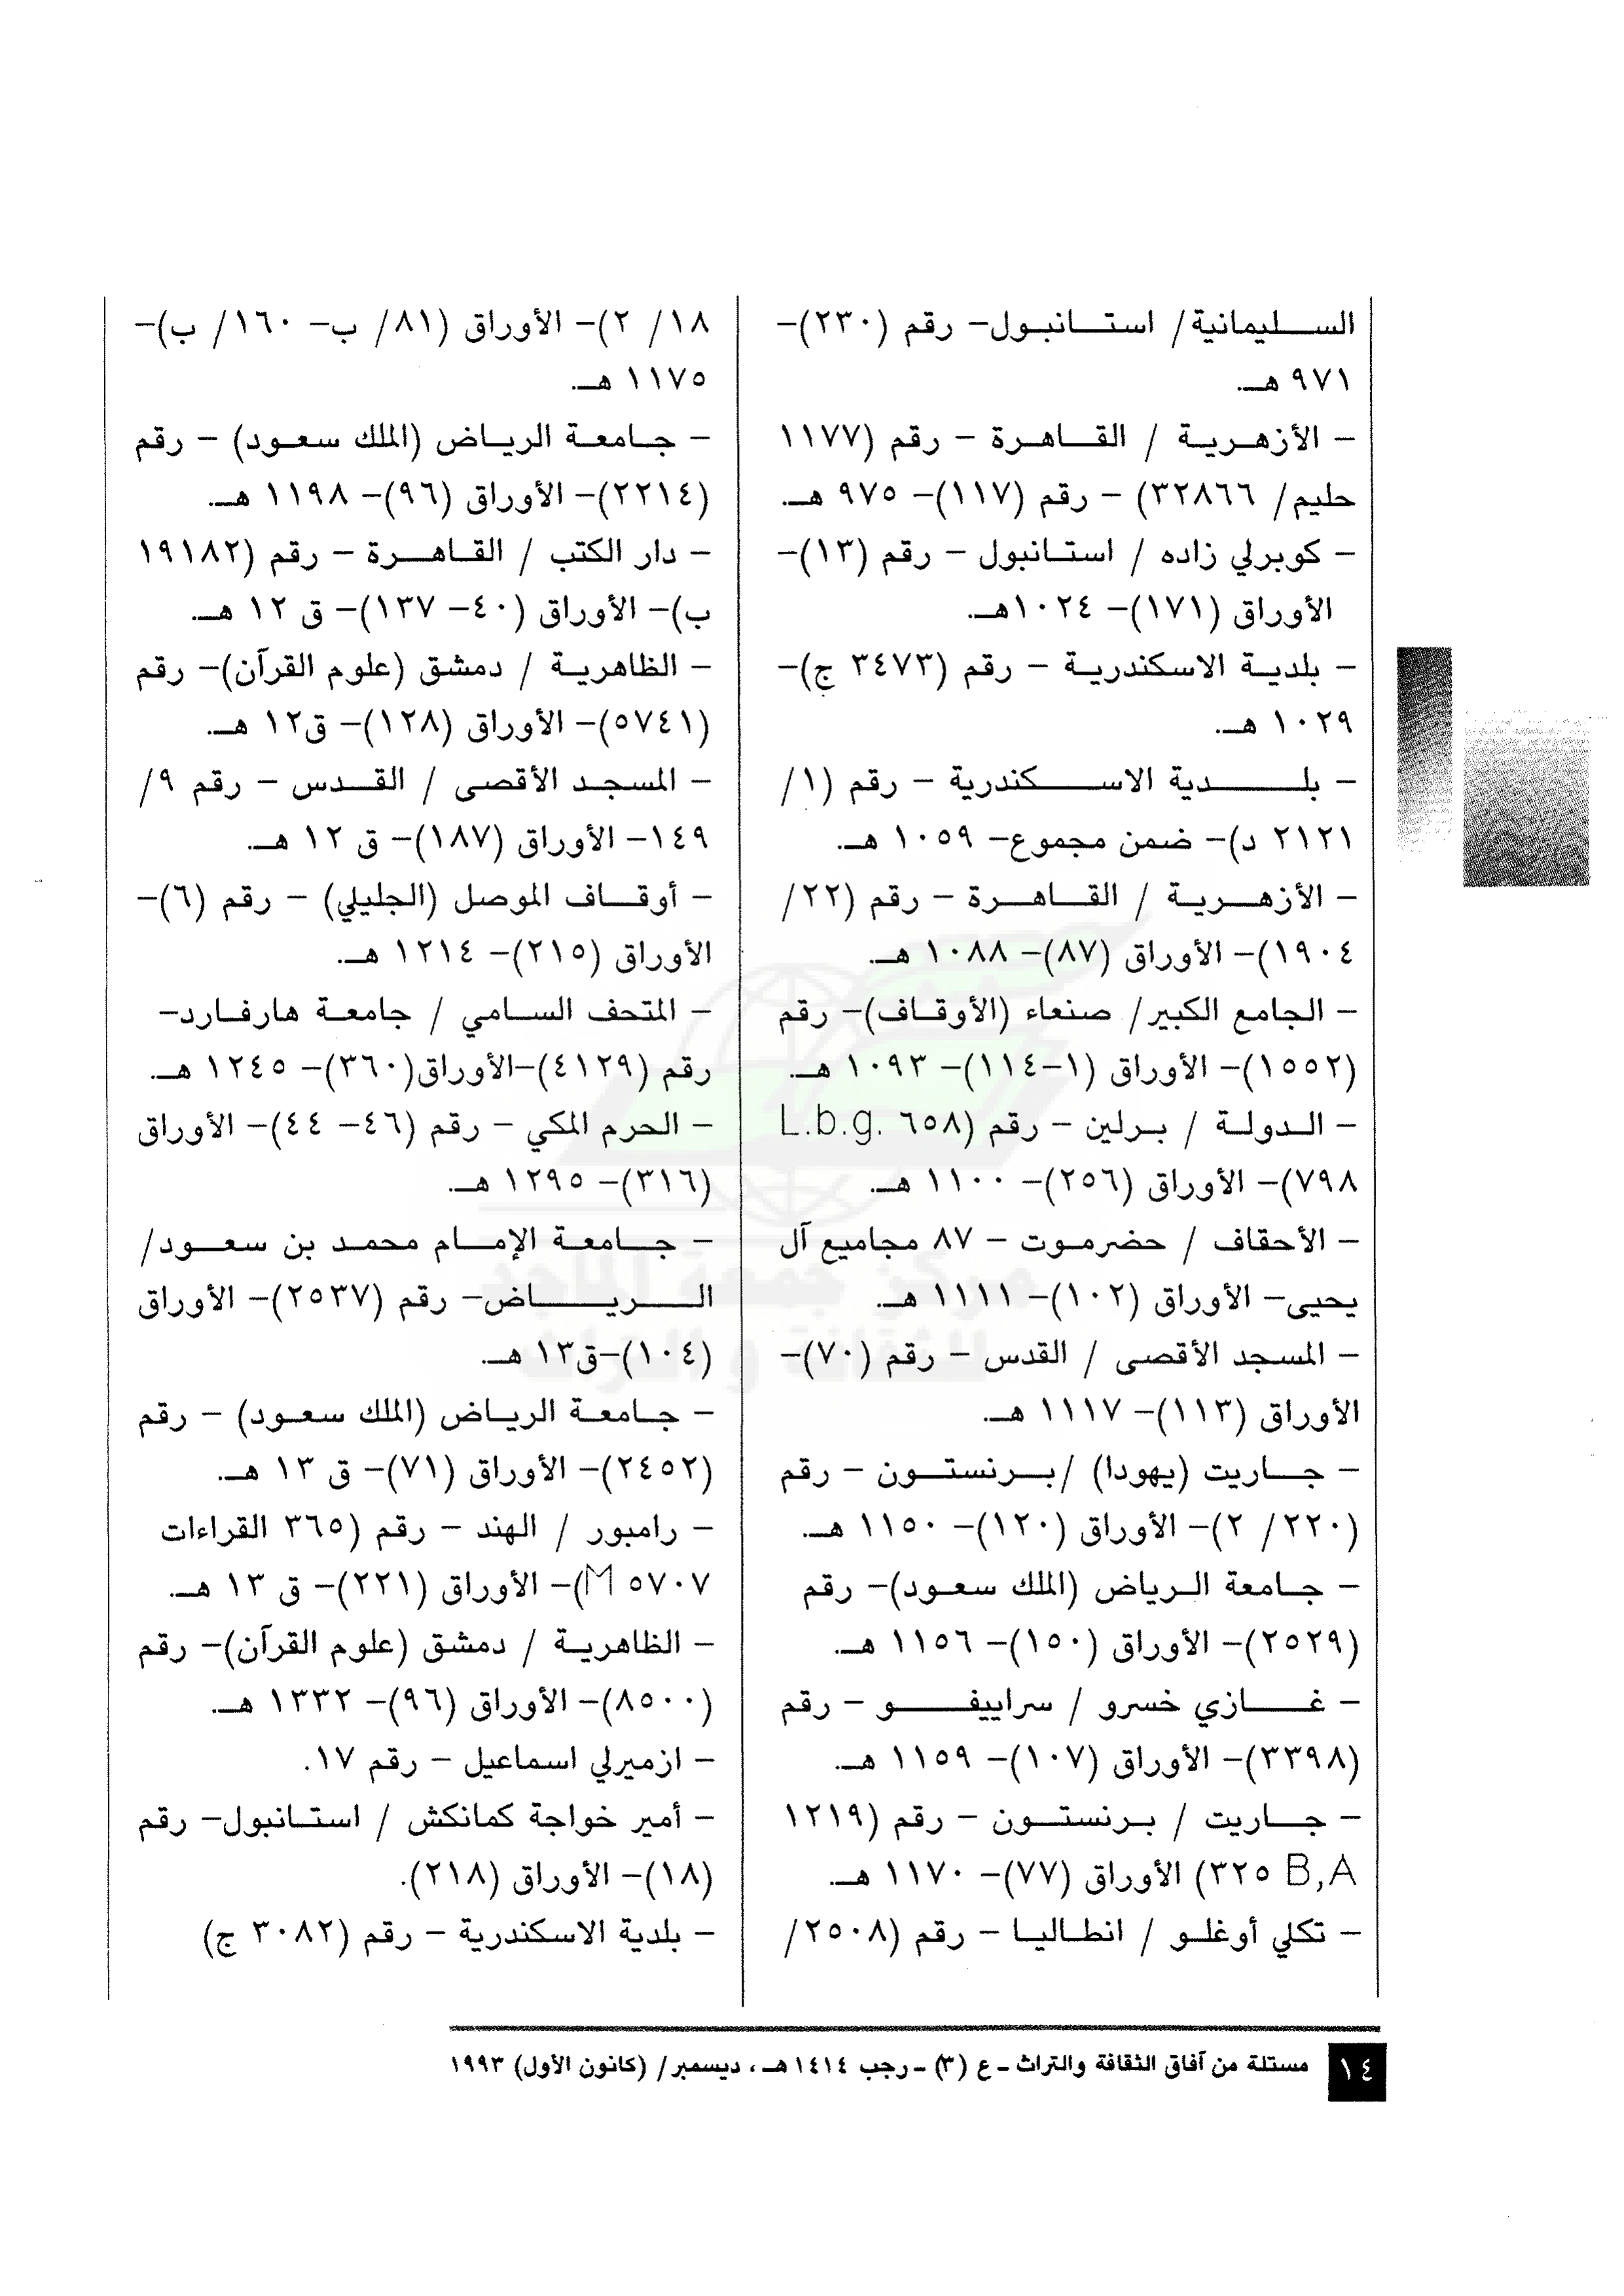 السليمانية/ استانبول– رقم (٢٣٠)–
٩٧١ هـ.
– الأزهرية / القاهرة – رقم (١١٧٧
حليم/ ٣٢٨٦٦) – رقم (١١٧)– ٩٧٥ هـ.
– كوبرلي زاده / استانبول – رقم (١٣)–
الأوراق (١٧١)– ١٠٢٤هـ.
– بلدية الاسكندرية – رقم (٣٤٧٣ ج)–
١٠٢٩ هـ.
– بلدية الاسكندرية – رقم (١/
٢١٢١ د)– ضمن مجموع– ١٠٥٩ هـ.
– الأزهرية / القاهرة – رقم (٢٢/
١٩٠٤)– الأوراق (٨٧)– ١٠٨٨ هـ.
– الجامع الكبير/ صنعاء (الأوقاف)– رقم
(١٥٥٢)– الأوراق (١–١١٤)– ١٠٩٣ هـ.
– الدولة / برلين – رقم (٦٥٨ L.b.g.
٧٩٨)– الأوراق (٢٥٦)– ١١٠٠ هـ.
– الأحقاف / حضرموت – ٨٧ مجاميع آل
يحيى– الأوراق (١٠٢)– ١١١١ هـ.
– المسجد الأقصى / القدس – رقم (٧٠)–
الأوراق (١١٣)– ١١١٧ هـ.
– جاريت (يهودا) /برنستون – رقم
(٢٢٠/ ٢)– الأوراق (١٢٠)– ١١٥٠ هـ.
– جامعة الرياض (الملك سعود)– رقم
(٢٥٢٩)– الأوراق (١٥٠)– ١١٥٦ هـ.
– غازي خسرو / سراييفو – رقم
(٣٣٩٨)– الأوراق (١٠٧)– ١١٥٩ هـ.
– جاريت / برنستون – رقم (١٢١٩
٣٢٥ B,A) الأوراق (٧٧)– ١١٧٠ هـ.
– تكلي أوغلو / انطاليا – رقم (٢٥٠٨/
١٨/ ٢)– الأوراق (٨١/ ب– ١٦٠/ ب)–
١١٧٥ هـ.
– جامعة الرياض (الملك سعود) – رقم
(٢٢١٤)– الأوراق (٩٦)– ١١٩٨ هـ.
– دار الكتب / القاهرة – رقم (١٩١٨٢
ب)– الأوراق (٤٠– ١٣٧)– ق ١٢ هـ.
– الظاهرية / دمشق (علوم القرآن)– رقم
(٥٧٤١)– الأوراق (١٢٨)– ق١٢ هـ.
– المسجد الأقصى / القدس – رقم ٩/
١٤٩– الأوراق (١٨٧)– ق ١٢ هـ.
– أوقاف الموصل (الجليلي) – رقم (٦)–
الأوراق (٢١٥)– ١٢١٤ هـ.
– المتحف السامي / جامعة هارفارد–
رقم (٤١٢٩)–الأوراق(٣٦٠)– ١٢٤٥ هـ.
– الحرم المكي – رقم (٤٦– ٤٤)– الأوراق
(٣١٦)– ١٢٩٥ هـ.
– جامعة الإمام محمد بن سعود/
الرياض– رقم (٢٥٣٧)– الأوراق
(١٠٤)–ق١٣ هـ.
– جامعة الرياض (الملك سعود) – رقم
(٢٤٥٢)– الأوراق (٧١)– ق ١٣ هـ.
– رامبور / الهند – رقم (٣٦٥ القراءات
٥٧٠٧ M)– الأوراق (٢٢١)– ق ١٣ هـ.
– الظاهرية / دمشق (علوم القرآن)– رقم
(٨٥٠٠)– الأوراق (٩٦)– ١٣٣٢ هـ.
– ازميرلي اسماعيل – رقم ١٧.
– أمير خواجة كمانكش / استانبول– رقم
(١٨)– الأوراق (٢١٨).
– بلدية الاسكندرية – رقم (٣٠٨٢ ج)
مركز جمعة الماجد
للثقافة والتراث
١٤ مستلة من آفاق الثقافة والتراث ـ ع (٣) ـ رجب ١٤١٤ هـ، ديسمبر/ (كانون الأول) ١٩٩٣